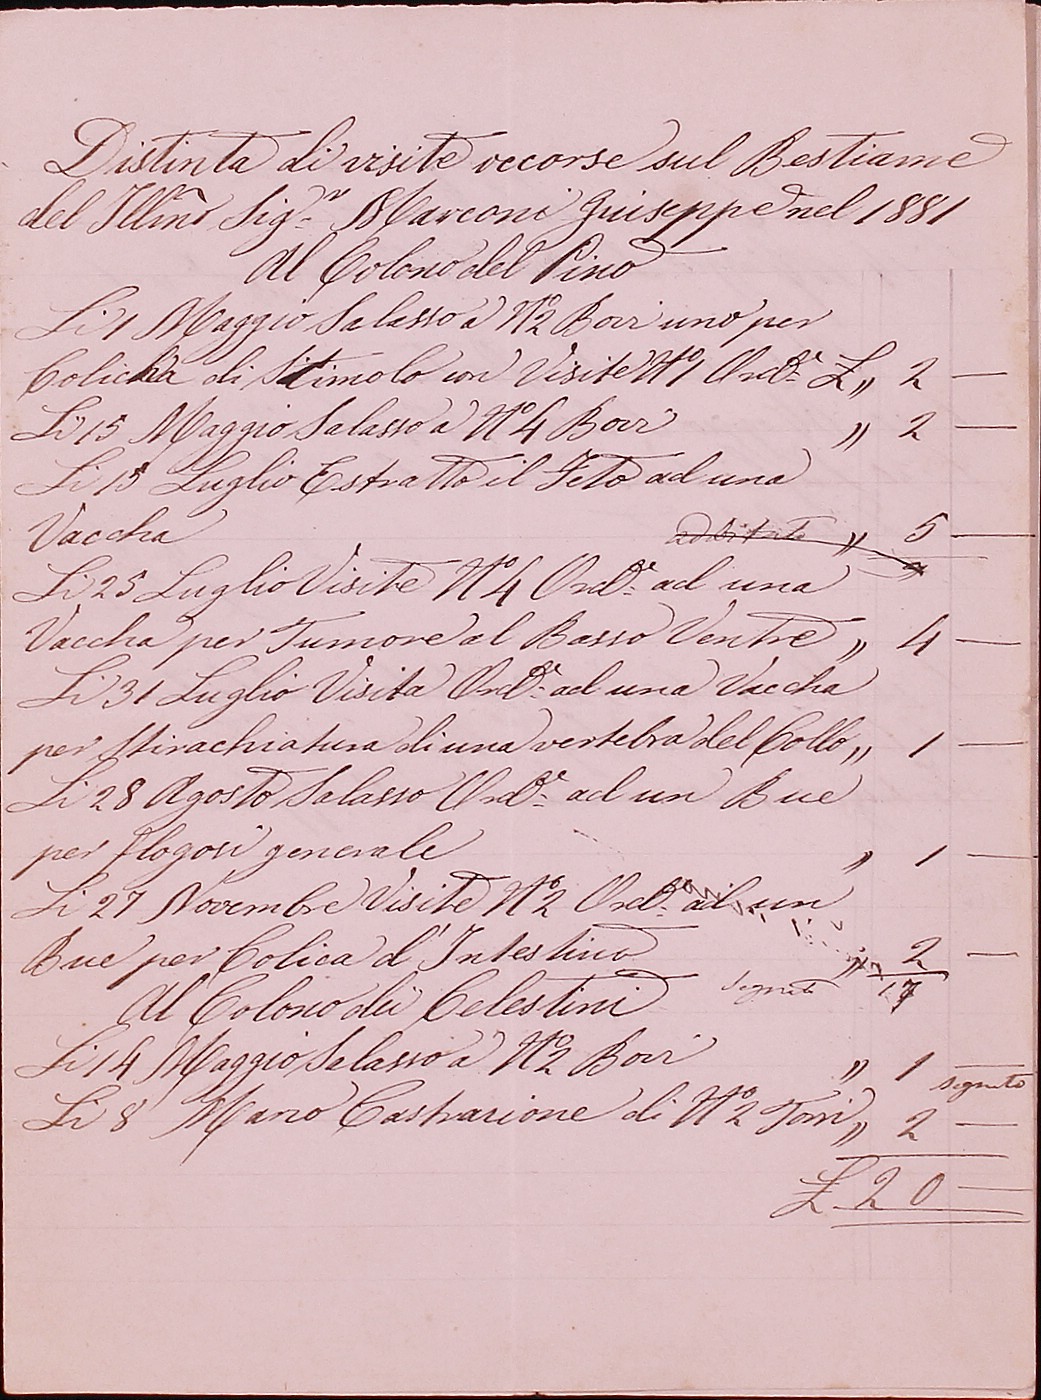 Distinta di visite occorse sul Bestiame
del Illmo Sigr. Marconi Giuseppe nel 1881
Al Colono del Pino
Li 1 Maggio Salasso a No 2 Bovi uno per
Colicha di Stimolo con Visite No 1 Orde. £ „ 2 —
Li 15 Maggio Salasso a No 4 Bovi „ 2 —
Li 15 Luglio Estratto il Feto ad una
Vaccha „ 5 —
Li 25 Luglio Visite No 4 Orde. ad una
Vaccha per Tumore al Basso Ventre „ 4 —
Li 31 Luglio Visita Orde. ad una Vaccha
per stirachiatura di una vertebra del Collo „ 1 —
Li 28 Agosto Salasso Orde. ad un Bue
per flogosi generale „ 1 —
Li 27 Novembre Visite No 2 Orde. ad un
Bue per Colica d'Intestino „ 2 —
segnato 17
Al Colono dei Celestini
Li 14 Maggio Salasso a No 2 Bovi „ 1
segnato
Li 8 Marzo Castrazione di No 2 Tori „ 2 —
£ 20 —